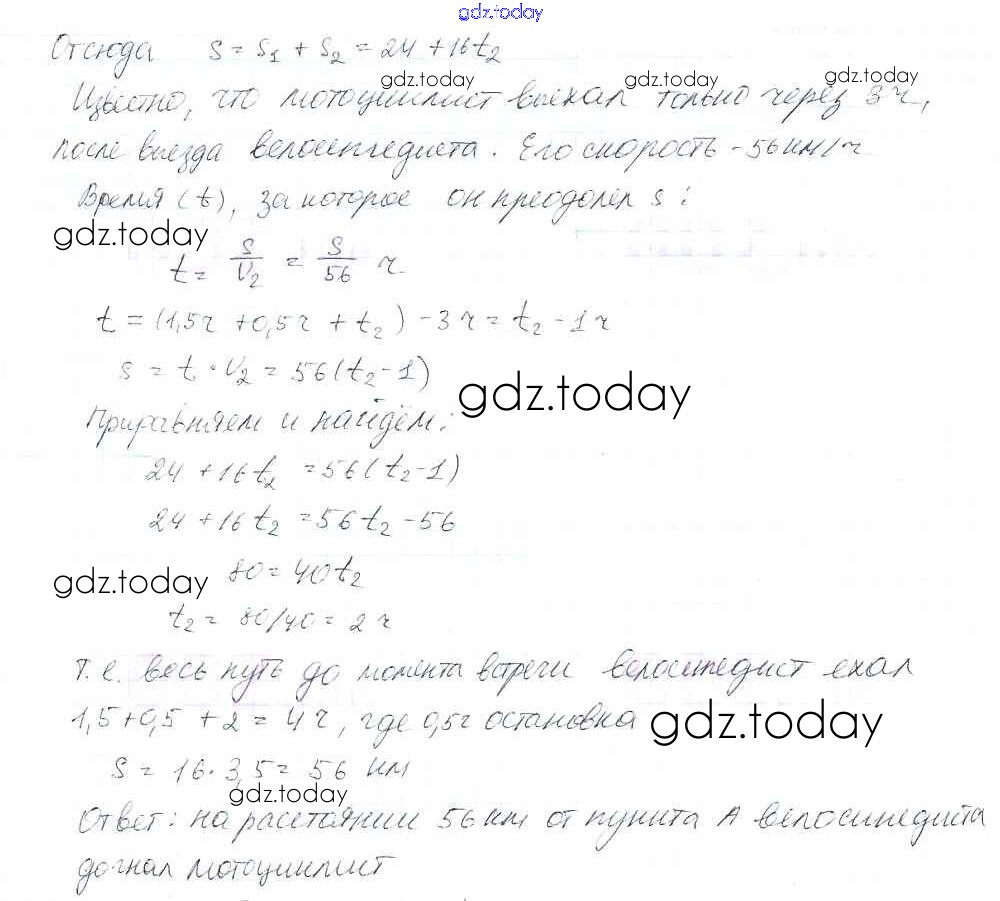 gdz.today
Отсюда s = s₁ + s₂ = 24 + 16t₂
gdz.today gdz.today gdz.today
Известно, что мотоциклист выехал только через 3 ч,
после выезда велосипедиста. Его скорость - 56 км/ч
Время (t), за которое он преодолел s:
gdz.today
t = s/V₂ = s/56 ч
t = (1,5ч + 0,5ч + t₂) - 3ч = t₂ - 1ч
s = t · V₂ = 56(t₂ - 1)
gdz.today
Приравняем и найдём:
24 + 16t₂ = 56(t₂ - 1)
24 + 16t₂ = 56t₂ - 56
gdz.today 80 = 40t₂
t₂ = 80/40 = 2 ч
Т. е. весь путь до момента встречи велосипедист ехал
1,5 + 0,5 + 2 = 4 ч, где 0,5ч остановка gdz.today
S = 16 · 3,5 = 56 км
gdz.today
Ответ: на расстоянии 56 км от пункта А велосипедиста
догнал мотоциклист